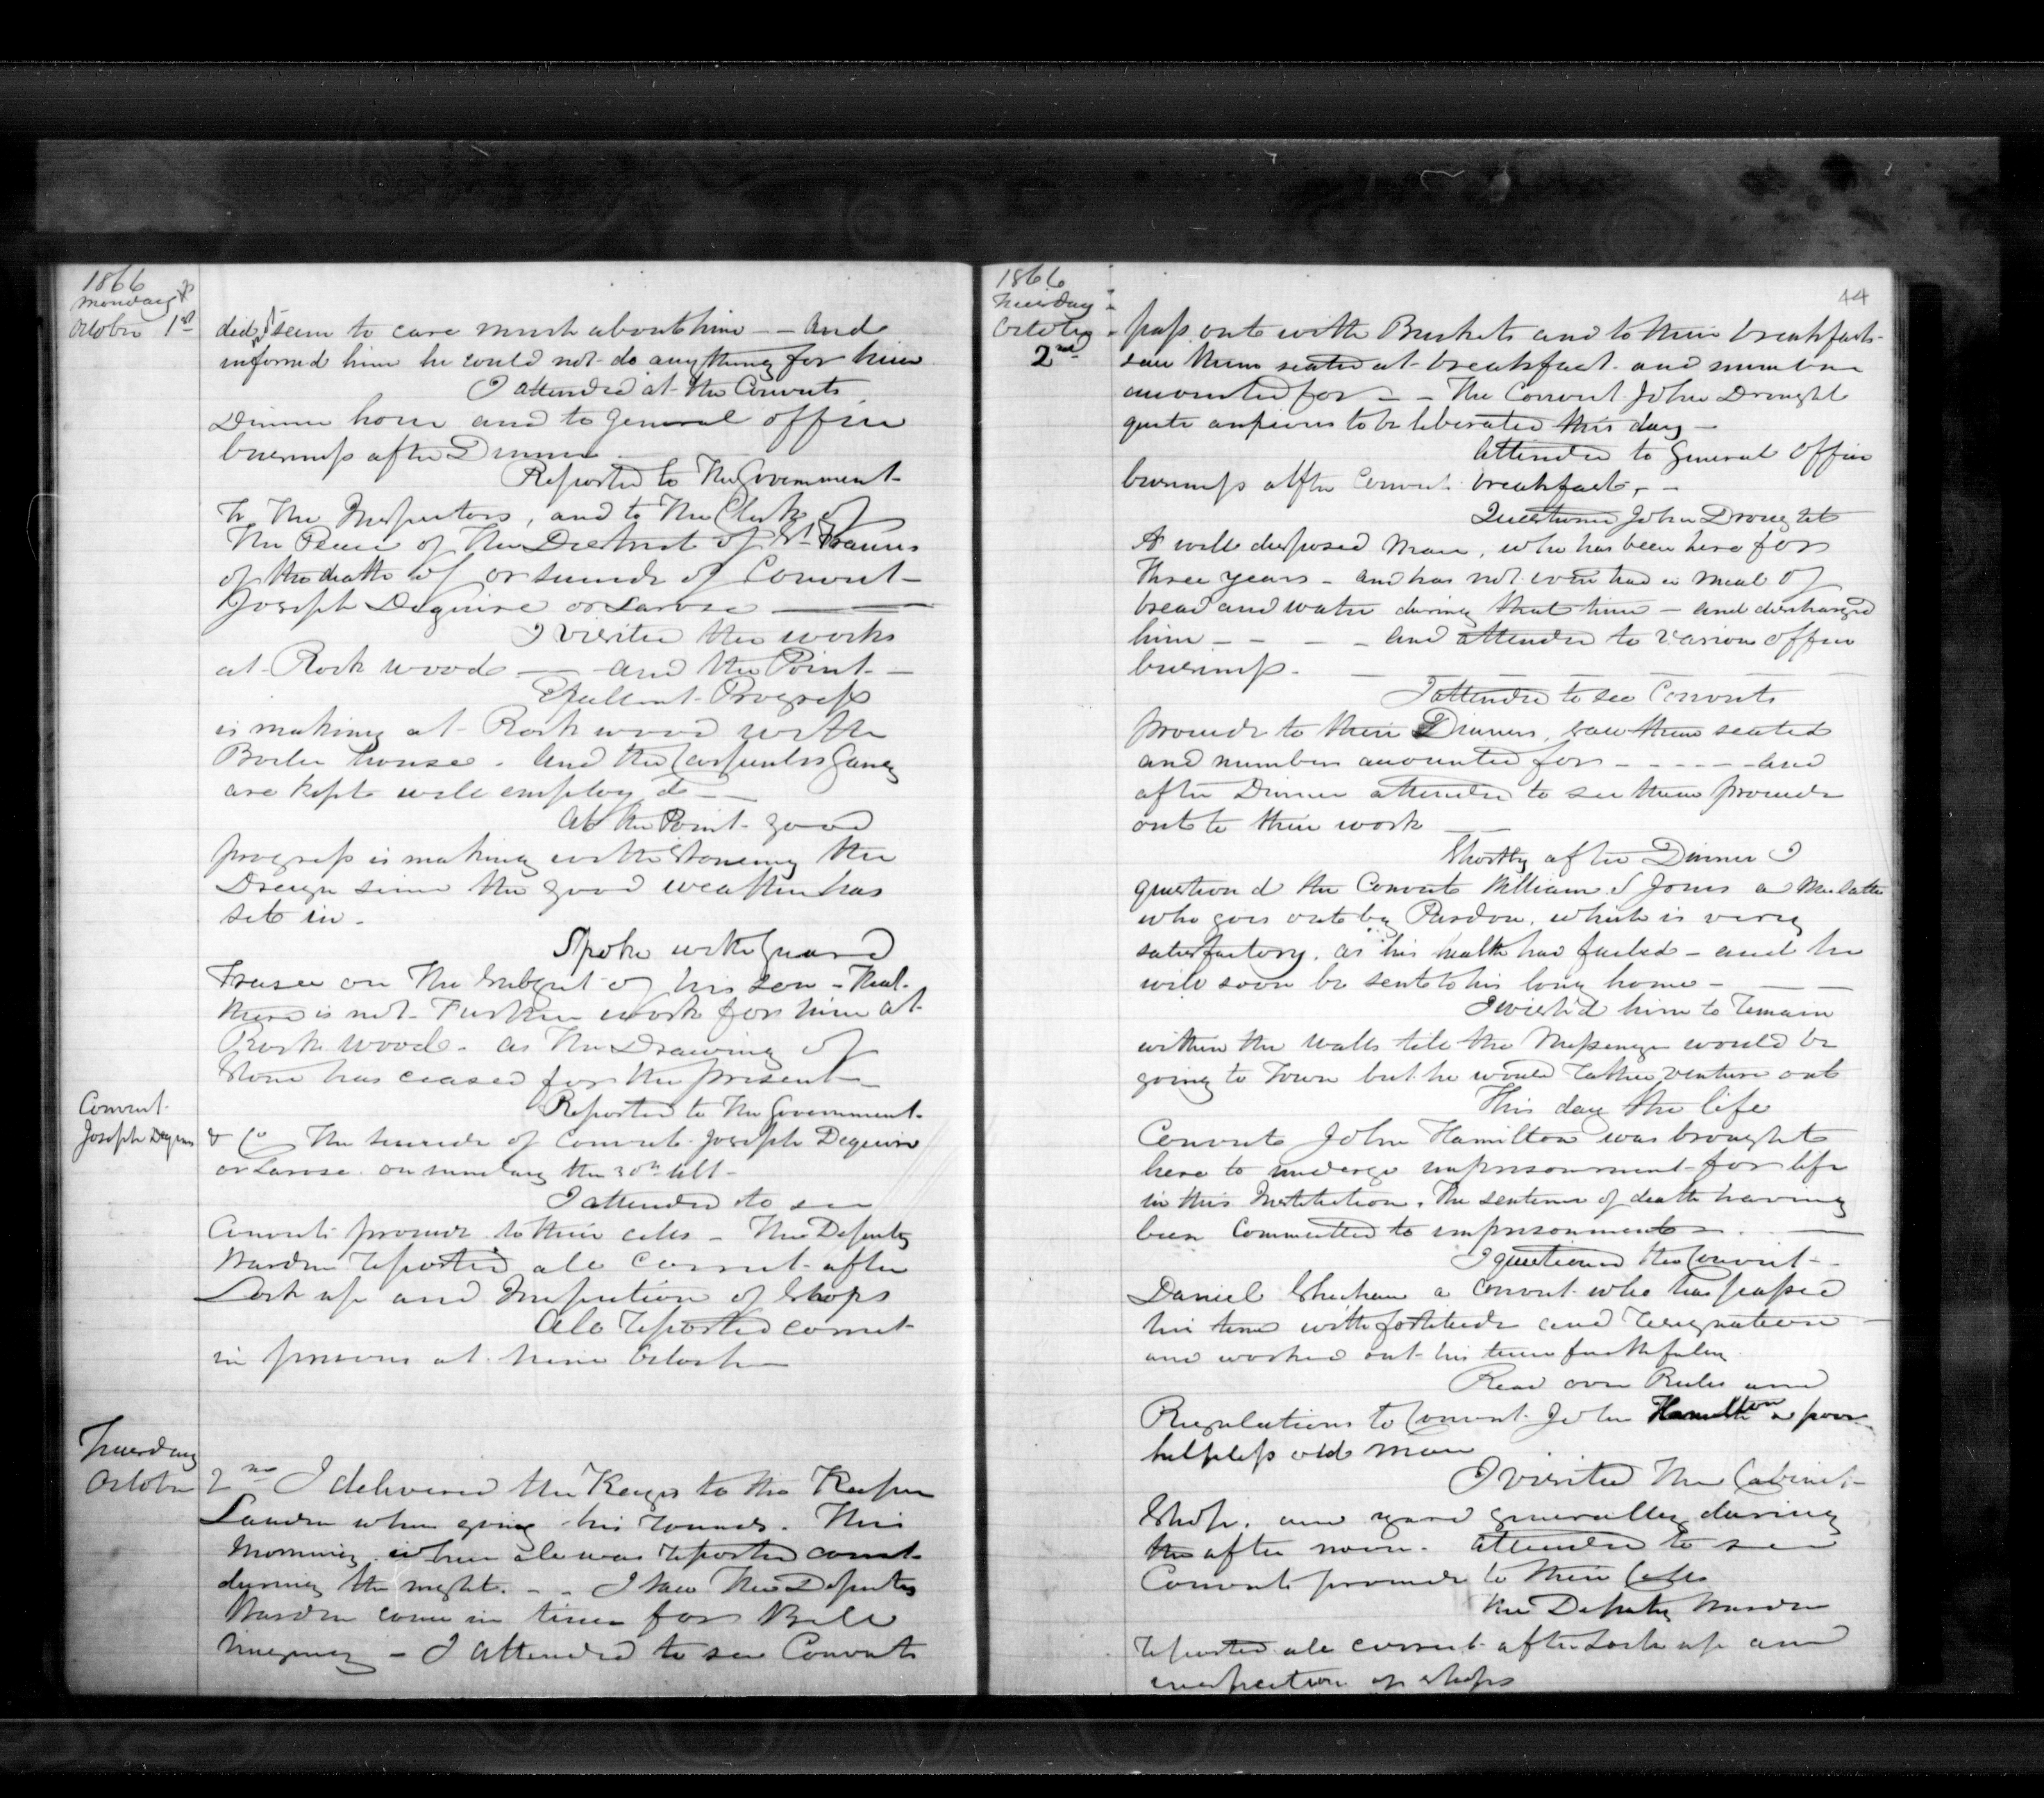 1866
Monday
October 1st
did seem to care much about him - - and
informed him he could not do anything for him
I attended at the Convicts
Dinner hour and to General office
business after Dinner
Reported to The Government
To The Inspectors, and to The Clerk of
The Peace of The District of St Francis
of the death of or suicide of Convict
Joseph Deguire or Larose
I visited the works
at Rock wood — and the Point —
Excellent Progress
is making at Rock wood with
Boiler house. and the Carpenters Gang
are kept well employ'd —
At the Point good
progress is making with the Stoneing the
since the good weather has
set in.
Spoke with Guard
Fraser on The Subject of his son - that
there is not Further work for him at
Rock wood - as The Drawing of
Stone has ceased for the present —
Convict
Joseph Deguire
Reported to The Government
& Co The suicide of Convict Joseph Deguire
or Larose on Sunday the 30th Ult -
I attended to see
Convicts proceed to their cells - The Deputy
Warden reported all correct after
Lock up and Inspection of Shops
All reported correct
in prisons at nine Oclock —
Tuesday
October 2nd I delivered the Keys to the Keeper
when going his rounds. This
Morning when all was reported correct
during the night. - - I saw The Deputy
Warden come in time for Bell
ringing - I attended to see Convicts
44
1866
Tuesday
October
2nd
pass out with Buckets and to their breakfasts
saw them seated at breakfast and numbers
accounted for - - The Convict John Drought
quite anxious to be liberated this day -
Attended to General Office
business after Convict breakfast, -
Questioned John Drought
A well disposed Man, who has been here for
Three years - and has not even had a meal of
bread and water during that time - and discharged
him - - - - and attended to various office
business.
I attended to see Convicts
proceed to their Dinners, saw them seated
and numbers accounted for - - - - - and
after Dinner attended to see them proceed
out to their work
Shortly after Dinner I
question'd the Convict William S Jones a Mulatto
who goes out by Pardon, which is very
satisfactory, as his health has failed - and he
will soon be sent to his long home -
I wish'd him to remain
within the walls till the Messenger would be
going to Town but he would rather venture out
This day the life
Convict John Hamilton was brought
here to undergo imprisonment for life
in this Institution, The sentence of death having
been Committed to imprisonment
I questioned the Convict -
Daniel Sheehan a Convict who has passed
his time with fortitude and resignation
and worked out his time faithfully
Read over Rules and
Regulations to Convict John Hamilton a poor
helpless old man
I visited The Cabinet
Shop, and yard generally during
the after noon. attended to see
Convicts proceed to their Cells
The Deputy Warden
reported all correct after Lock up and
inspection of shops